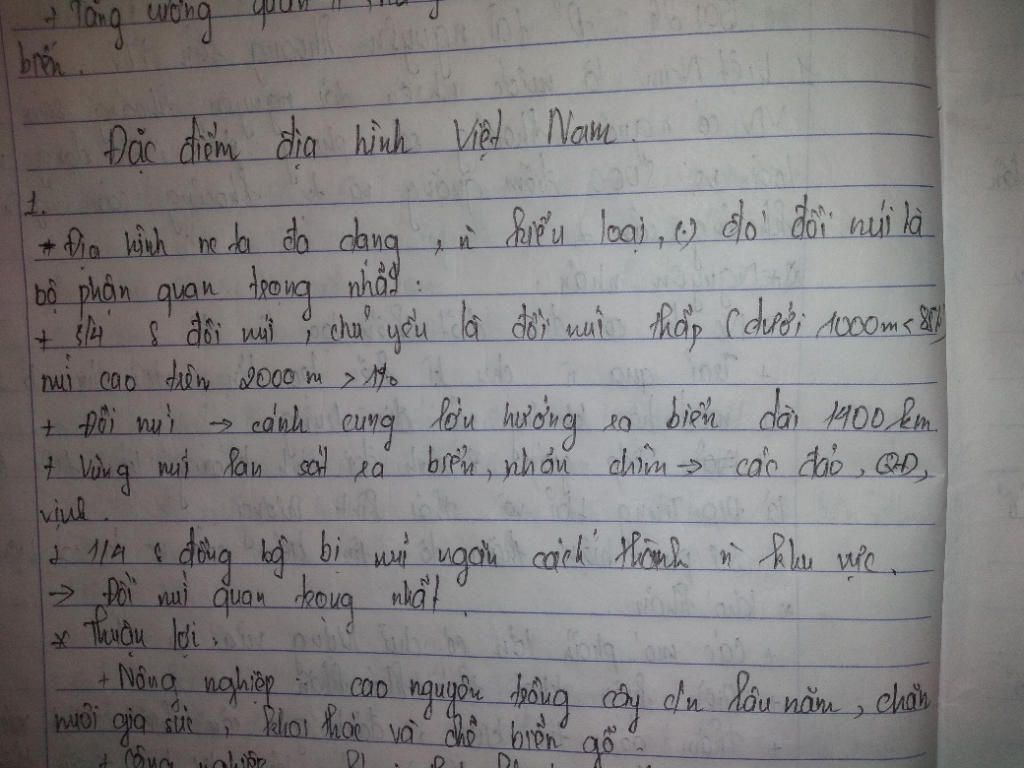 + Tăng cường quan
biển.
Đặc điểm địa hình Việt Nam.
1.
* Địa hình nc ta đa dạng, n` kiểu loại, (.) đó đồi núi là
bộ phận quan trọng nhất:
+ 3/4 S đồi núi, chủ yếu là đồi núi thấp (dưới 1000m < 85%)
núi cao trên 2000m > 1%
+ Đồi núi → cánh cung lớn hướng ra biển dài 1400 km
+ Vùng núi lan sát ra biển, nhấn chìm → các đảo, QĐ,
vịnh.
+ 1/4 S đồng bg bị núi ngăn cách thành n` khu vực.
→ Đồi núi quan trọng nhất
* Thuận lợi.
+ Nông nghiệp: cao nguyên trồng cây c/n lâu năm, chăn
nuôi gia súc, khai thác và chế biến gỗ.
+ Công nghiệp